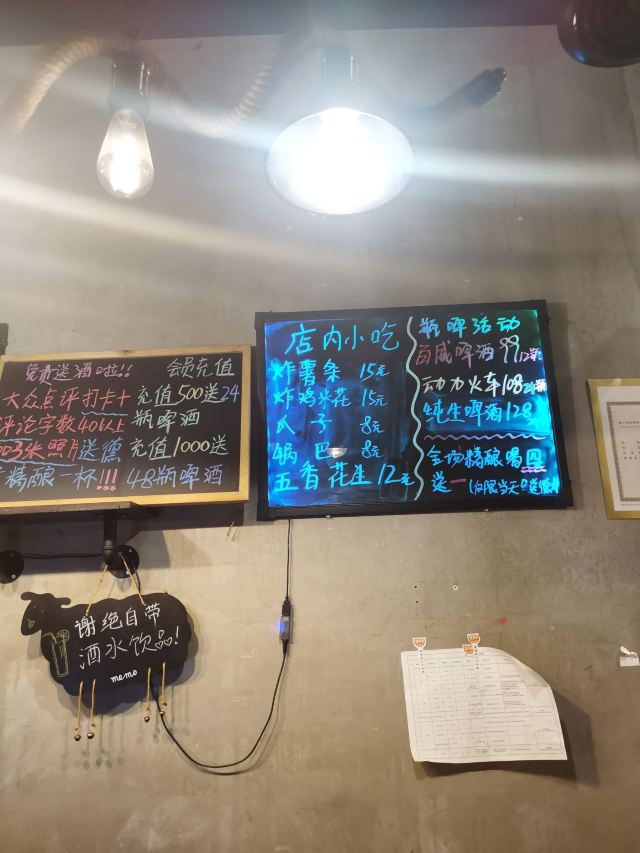 免责送酒啦!!
会员充值
大众点评打卡+
评论字数40以上
3张照片送德
精酿一杯!!!
充值500送24
瓶啤酒
充值1000送
48瓶啤酒
店内小吃
炸薯条 15元
炸鸡米花 15元
瓜子 8元
锅巴 8元
五香花生 12元
瓶啤活动
百威啤酒99/12瓶
动力火车108/24瓶
纯生啤酒128
全场精酿喝四
送一(仅限当天
谢绝自带
酒水饮品!
memo